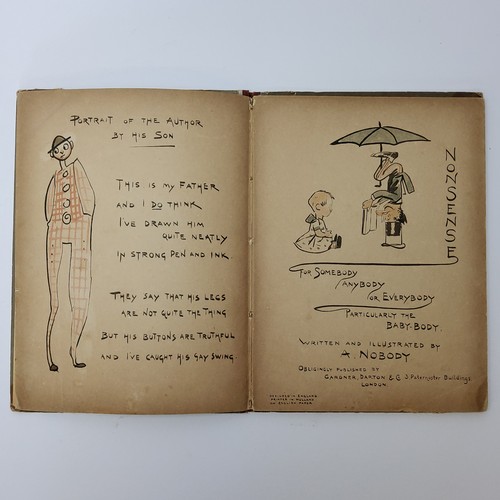 PORTRAIT OF THE AUTHOR
BY HIS SON
THIS IS MY FATHER
AND I DO THINK
I'VE DRAWN HIM
QUITE NEATLY
IN STRONG PEN AND INK
THEY SAY THAT HIS LEGS
ARE NOT QUITE THE THING
BUT HIS BUTTONS ARE TRUTHFUL
AND I'VE CAUGHT HIS GAY SWING.
NONSENSE
FOR SOMEBODY
ANYBODY
OR EVERYBODY
PARTICULARLY THE
BABY-BODY.
WRITTEN AND ILLUSTRATED BY
A. NOBODY.
OBLIGINGLY PUBLISHED BY
GARDNER, DARTON & Co 3. Paternoster Buildings.
LONDON.
DESIGNED IN ENGLAND
PRINTED IN HOLLAND
ON ENGLISH PAPER